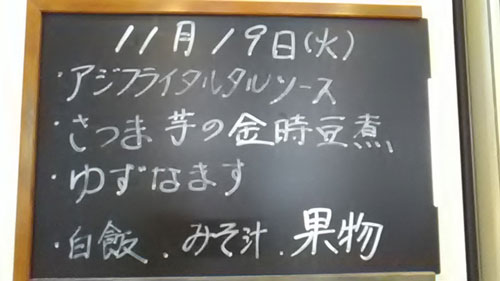 11月19日(火)
・アジフライタルタルソース
・さつま芋の金時豆煮
・ゆずなます
・白飯.みそ汁.果物